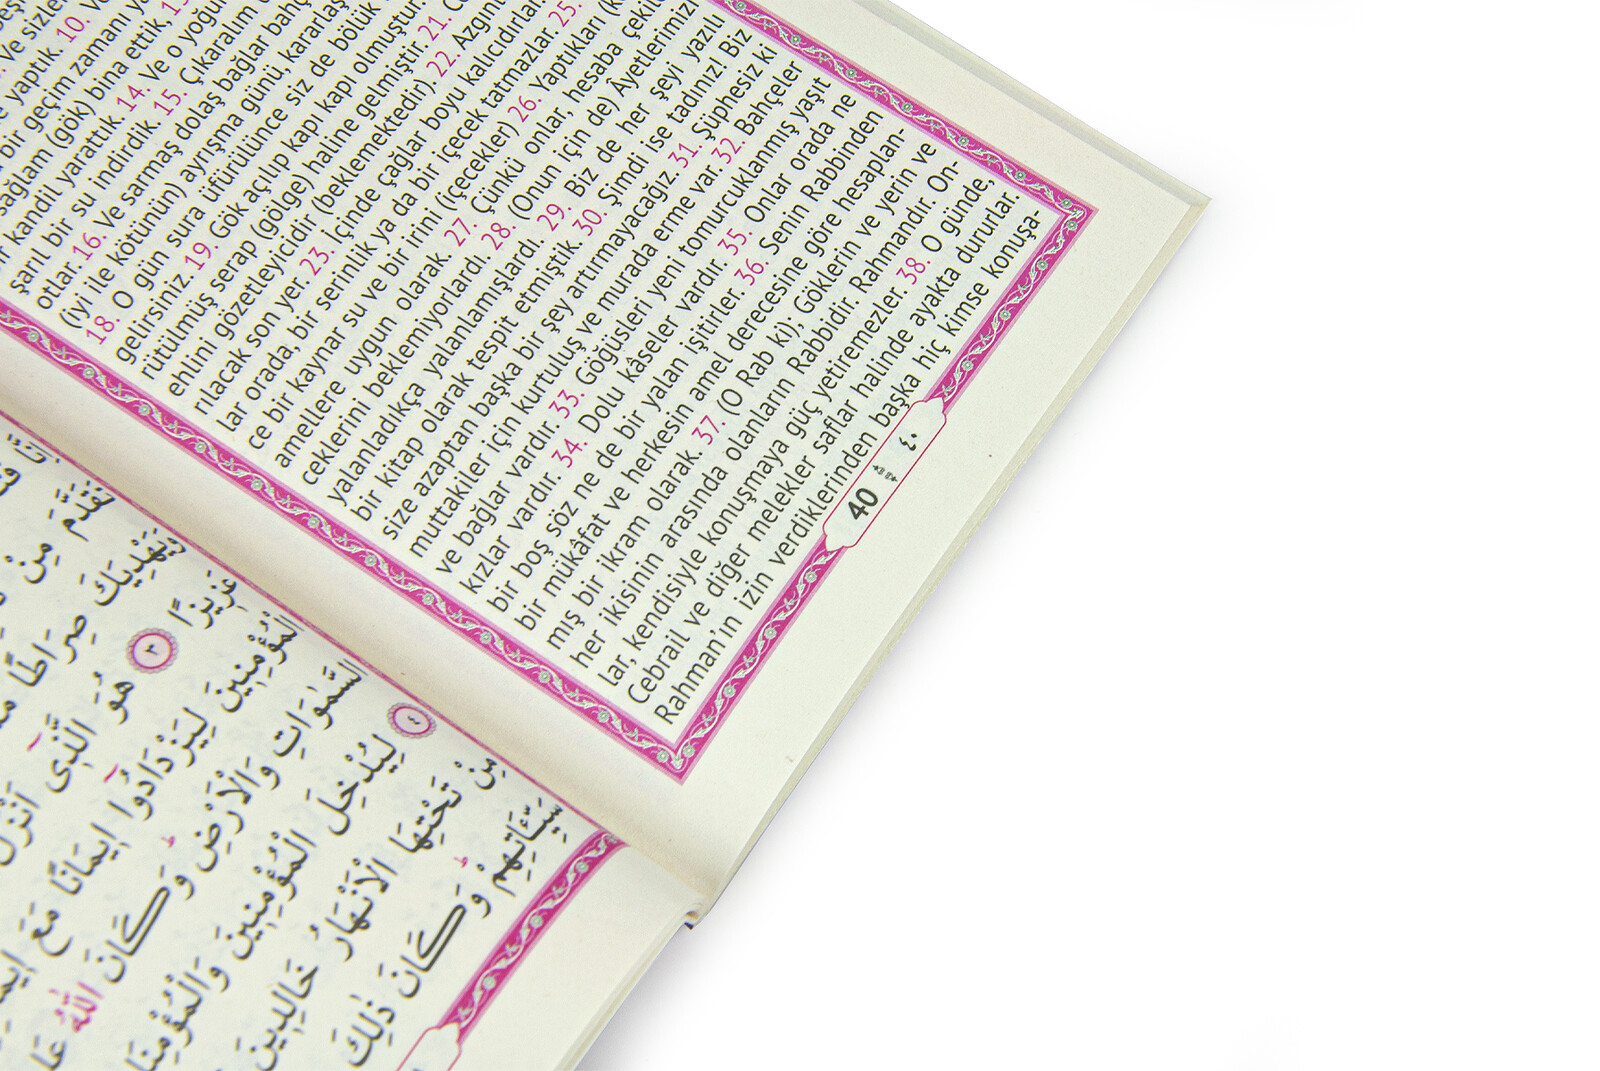 ve yaptık. 10.
bir geçim zamanı
sağlam (gök) bina ettik.
kandil yarattık. 14. Ve o yoğun
şarıl bir su indirdik. 15. Çıkaralım
otlar. 16. Ve sarmaş dolaş bağlar bahç
(iyi ile kötünün) ayrışma günü, kararlaş
18. O gün sura üfürülünce siz de bölük
gelirsiniz. 19. Gök açılıp kapı kapı olmuştur.
rütülmüş serap (gölge) haline gelmiştir. 21.
ehlini gözetleyicidir (beklemektedir). 22. Azgın
rılacak son yer. 23. İçinde çağlar boyu kalıcıdırlar.
lar orada, bir serinlik ya da bir içecek tatmazlar. 25.
ce bir kaynar su ve bir irini (içecekler) 26. Yaptıkları
amellere uygun olarak. 27. Çünkü onlar, hesaba çekil
ceklerini beklemiyorlardı. 28. (Onun için de) Âyetlerimizi
yalanladıkça yalanlamışlardı. 29. Biz de her şeyi yazılı
bir kitap olarak tespit etmiştik. 30. Şimdi ise tadınız! Biz
size azaptan başka bir şey artırmayacağız. 31. Şüphesiz ki
muttakiler için kurtuluş ve murada erme var. 32. Bahçeler
ve bağlar vardır. 33. Göğüsleri yeni tomurcuklanmış yaşıt
kızlar vardır. 34. Dolu kâseler vardır. 35. Onlar orada ne
bir boş söz ne de bir yalan işitirler. 36. Senin Rabbinden
bir mükâfat ve herkesin amel derecesine göre hesaplan-
mış bir ikram olarak. 37. (O Rab ki), Göklerin ve yerin ve
her ikisinin arasında olanların Rabbidir. Rahmandır. On-
lar, kendisiyle konuşmaya güç yetiremezler. 38. O günde,
Cebrail ve diğer melekler saflar halinde ayakta dururlar.
Rahman'ın izin verdiklerinden başka hiç kimse konuşa-
40 ٤٠
تَقَدَّمَ مِنْ
وَيَهْدِيَكَ صِرَاطًا
عَزِيزًا ٣ هُوَ الَّذٖٓى اَنْزَلَ
الْمُؤْمِنٖينَ لِيَزْدَادُٓوا اٖيمَانًا مَعَ
السَّمٰوَاتِ وَالْاَرْضِ وَكَانَ اللّٰهُ
٤ لِيُدْخِلَ الْمُؤْمِنٖينَ وَالْمُؤْمِنَا
مِنْ تَحْتِهَا الْاَنْهَارُ خَالِدٖينَ
سَيِّـَٔاتِهِمْ وَكَانَ ذٰلِكَ